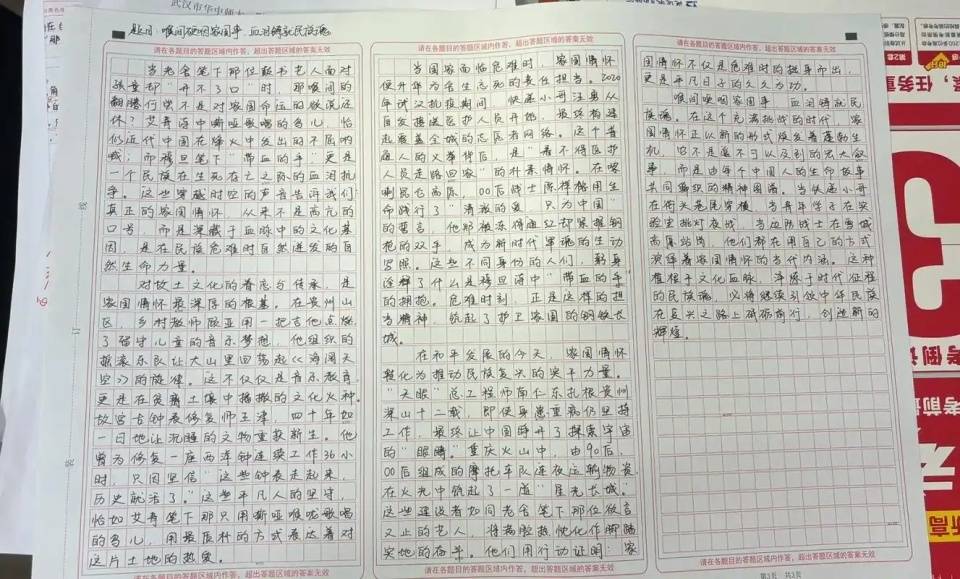 题目：喉间哽咽家国事，血泪铸就民族魂
请在各题目的答题区域内作答，超出答题区域的答案无效
当老舍笔下那位鼓书艺人面对
孩童却“开不了口”时，那喉间的
翻腾何尝不是对家国命运的
休？艾青诗中嘶哑歌唱的鸟儿，恰
似近代中国在烽火中发出的不屈呐
喊；而穆旦笔下“带血的手”更是
一个民族在生死存亡之际的血泪抗
争。这些穿越时空的声音告诉我们：
真正的家国情怀，从来不是高亢的
口号，而是深藏于血脉中的文化基
因，是在民族危难时自然迸发的自
然生命力量。
对故土文化的眷恋与传承，是
家国情怀最深厚的根基。在贵州山
区，乡村教师顾亚用一把吉他点燃
了留守儿童的音乐梦想，他组织的
摇滚乐队让大山里回荡起《海阔天
空》的旋律。这不仅仅是音乐教育，
更是在贫瘠土壤中播撒的文化火种。
故宫古钟表修复师王津，四十年如
一日地让沉睡的文物重获新生。他
曾为修复一座西洋钟连续工作36小
时，只因坚信“这些钟表走起来，
历史就活了。”这些平凡人的坚守，
恰如艾青笔下那只用嘶哑喉咙歌唱
的鸟儿，用最质朴的方式表达着对
这片土地的热爱。
请在各题目的答题区域内作答，超出答题区域的答案无效
请在各题目的答题区域内作答，超出答题区域的答案无效
当国家面临危难时，家国情怀
便升华为舍生忘死的责任担当。2020
年武汉抗疫期间，快递小哥汪勇从
自发接送医护人员开始，最终构建
起覆盖全城的志愿者网络。这个普
通人的义举背后，是“看不得医护
人员走路回家”的朴素情怀。在喀
喇昆仑高原，00后战士陈祥榕用生
命践行了“清澈的爱，只为中国”
的誓言，他那被冻得通红却紧握钢
枪的双手，成为新时代军魂的生动
写照。这些不同身份的人们，躬身
诠释了什么是穆旦诗中“带血的手”
的拥抱。危难时刻，正是这样的担
当精神，筑起了护卫家国的钢铁长
城。
在和平发展的今天，家国情怀
转化为推动民族复兴的实干力量。
“天眼”总工程师南仁东扎根贵州
深山十二载，即使身患重病仍坚持
工作，最终让中国睁开了探索宇宙
的“眼睛”。重庆火山中，由90后、
00后组成的摩托车队连夜运输物资，
在火光中筑起了一道“星光长城”。
这些建设者如同老舍笔下那位欲言
又止的艺人，将满腔热忱化作脚踏
实地的奋斗。他们用行动证明：家
请在各题目的答题区域内作答，超出答题区域的答案无效
请在各题目的答题区域内作答，超出答题区域的答案无效
国情怀不仅是危难时的挺身而出，
更是平凡日子的久久为功。
喉间哽咽家国事，血泪铸就民
族魂。在这个充满挑战的时代，家
国情怀正以新的形式焕发着蓬勃生
机，它不是遥不可以及别的宏大叙
事，而是由每个中国人的生命故事
共同编织的精神图谱。当快递小哥
在街头巷尾穿梭，当青年学子在实
验室挑灯夜战，当边防战士在雪域
高原站岗，他们都在用自己的方式
演绎着家国情怀的当代内涵。这种
植根于文化血脉，淬炼于时代征程
的民族魂，必将继续引领中华民族
在复兴之路上砥砺前行，创造新的
辉煌。
请在各题目的答题区域内作答，超出答题区域的答案无效
第2页 共2页